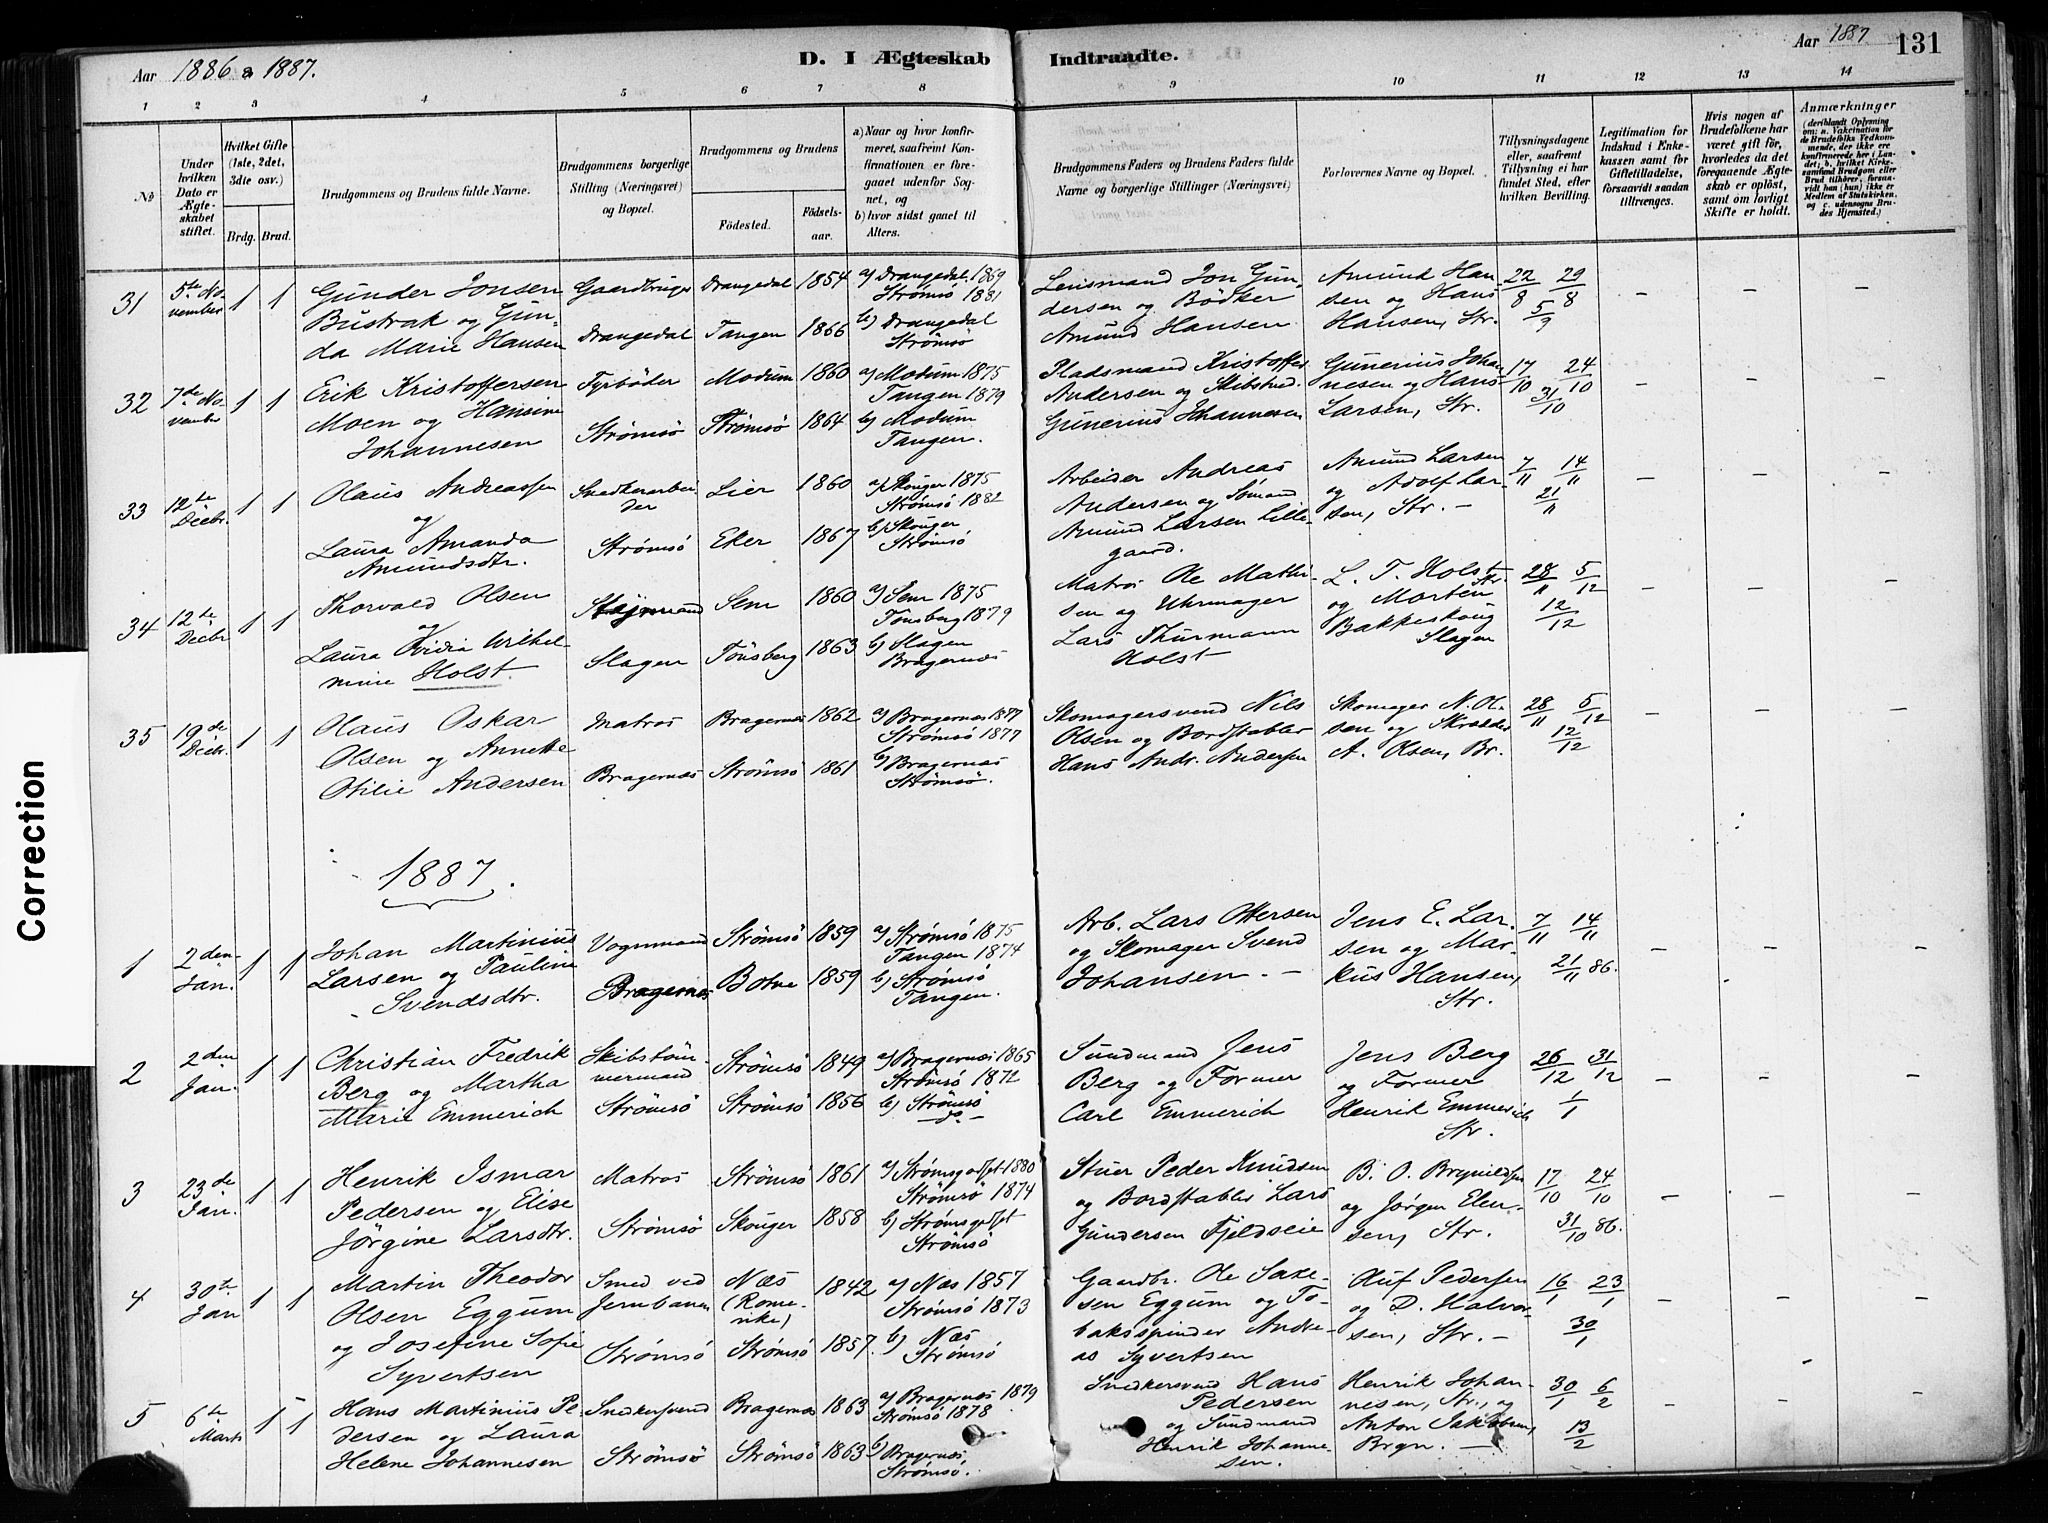 Aar 1886 a 1887.
D. I Ægteskab Indtraadte.
Aar 1887
131
1 2 3 4 5 6 7 8 8 9 10 11 12 13 14
No
Under hvilken Dato er Ægteskabet stiftet.
Hvilket Gifte (1ste, 2det, 3die osv.)
Brdg. Brud.
Brudgommens og Brudens fulde Navne.
Brudgommens borgerlige Stilling (Næringsvei) og Bopæl.
Brudgommens og Brudens
Födested.
Födselsaar.
a) Naar og hvor konfirmeret, saafremt Konfirmationen er foregaaet udenfor Sognet, og
b) hvor sidst gaaet til Alters.
Brudgommens Faders og Brudens Faders fulde Navne og borgerlige Stillinger (Næringsvei)
Forlovernes Navne og Bopæl.
Tillysningsdagene eller, saafremt Tillysning ei har fundet Sted, efter hvilken Bevilling.
Legitimation for Indskud i Enkekassen samt for Giftetilladelse, forsaavidt saadan tiltrænges.
Hvis nogen af Brudefolkene har været gift för, hvorledes da det foregaaende Ægteskab er oplöst, samt om lovligt Skifte er holdt.
Anmærkninger
(deriblandt Oplysning om: a. Vakcination for de Brudefolks Vedkommende, der ikke ere konfirmerede her i Landet; b. hvilket Kirkesamfund Brudgom eller Brud tilhörer, forsaavidt han (hun) ikke er Medlem af Statskirken, og c. udensogns Brudes Hjemsted.)
31 5te November 1 1 Gunder Jonsen Bustrak og Gunda Marie Hansen Gaardbruger Drangedal Drangedal 1854 Tangen 1866 a) Drangedal 1869 Strömsö 1881 b) Drangedal Strömsö Lensmand Jon Gundersen og Bödker Amund Hansen Amund Hansen og Hans Hansen, Str. 22/8 29/8 5/9 - - -
32 7de November 1 1 Erik Kristoffersen Moen og Hansine Johannesen Fyrböder Strömsö Modum 1860 Strömsö 1864 a) Modum 1875 Tangen 1879 b) Modum Tangen. Pladsmand Kristoffer Andersen og Skibstød. Gunerius Johannesen Gunerius Johannesen og Hans Larsen, Str. 17/10 24/10 31/10 - - -
33 12te Decbr. 1 1 Olaus Andreassen og Laura Amanda Amundsdtr. Snedkerarbeider Strömsö Lier 1860 Eker 1867 a) Skouger 1875 Strömsö 1882 b) Skouger Strömsö Arbeider Andreas Andersen og Sömand Amund Larsen Lillegaard. Amund Larsen og Adolf Larsen, Str. - 7/11 14/11 21/11 - - -
34 12te Decbr 1 1 Thorvald Olsen og Laura Ovidia Wilhelmine Holst. Slagen Sem 1860 Tönsberg 1863 a) Sem 1875 Tönsberg 1879 b) Slagen Bragernæs Matros Ole Mathisen og Uhrmager Lars Thurmann Holst L. T. Holst Str. og Morten Bakkeskoug Slagen 28/11 5/12 12/12 - - -
35 19de Decbr. 1 1 Olaus Oskar Olsen og Annette Otilie Andersen Matros Bragernæs Bragernæs 1862 Strömsö 1861 a) Bragernæs 1877 Strömsö 1877 b) Bragernæs Strömsö. Skomagersvend Nils Olsen og Bordstabler Hans Andr. Andersen Skomager N. Olsen og Skrædder A. Olsen, Br. 28/11 5/12 12/12 - - -
1887.
1 2den Jan. 1 1 Johan Martinius Larsen og Pauline Svendsdtr. Vognmand Bragernæs Strömsö 1859 Botne 1859 a) Strömsö 1875 Tangen 1874 b) Strömsö Tangen. Arb. Lars Ottersen og Skomager Svend Johansen. - Jens E. Larsen og Markus Hansen, Str. 7/11 14/11 21/11 86. - - -
2 2den Jan. 1 1 Christian Fredrik Berg og Martha Marie Emmerich Skibstömmermand Strömsö Strömsö 1849 Strömsö 1856 a) Bragernæs 1865 Strömsö 1872 b) Strömsö - do - Sundmand Jens Berg og Former Carl Emmerich Jens Berg og Former Henrik Emmerich Str. 26/12 31/12 1/1 - - -
3 23de Jan. 1 1 Henrik Ismar Pedersen og Elise Jörgine Larsdtr. Matros Strömsö Strömsö 1861 Skouger 1858 a) Strömsgodset 1880 Strömsö 1874 b) Strömsgodset Strömsö Stuer Peder Knudsen og Bordstabler Lars Gundersen Fjeldseie B. O. Brynildsen og Jörgen Elensen, Str. 17/10 24/10 31/10 86. - - -
4 30te Jan 1 1 Martin Theodor Olsen Eggum og Josefine Sofie Syvertsen Smed ved Jernbanen Strömsö Næs (Romerike) 1842 Strömsö 1857. a) Næs 1857 Strömsö 1873 b) Næs Strömsö Gaardbr. Ole Saxesen Eggum og Tobaksspinder Andreas Syvertsen Oluf Pedersen og D. Halvorsen, Str. - 16/1 23/1 30/1 - - -
5 6te Marts 1 1 Hans Martinius Pedersen og Laura Helene Johannesen Snedkersvend Strömsö Bragernæs 1863 Strömsö 1863 a) Bragernæs 1879 Strömsö 1878 b) Bragernæs, Strömsö. Snedkersvend Hans Pedersen og Sundmand Henrik Johannesen. Henrik Johannesen, Str., og Anton Jakobsen, Bragn. - 30/1 6/2 13/2 - - -
Correction